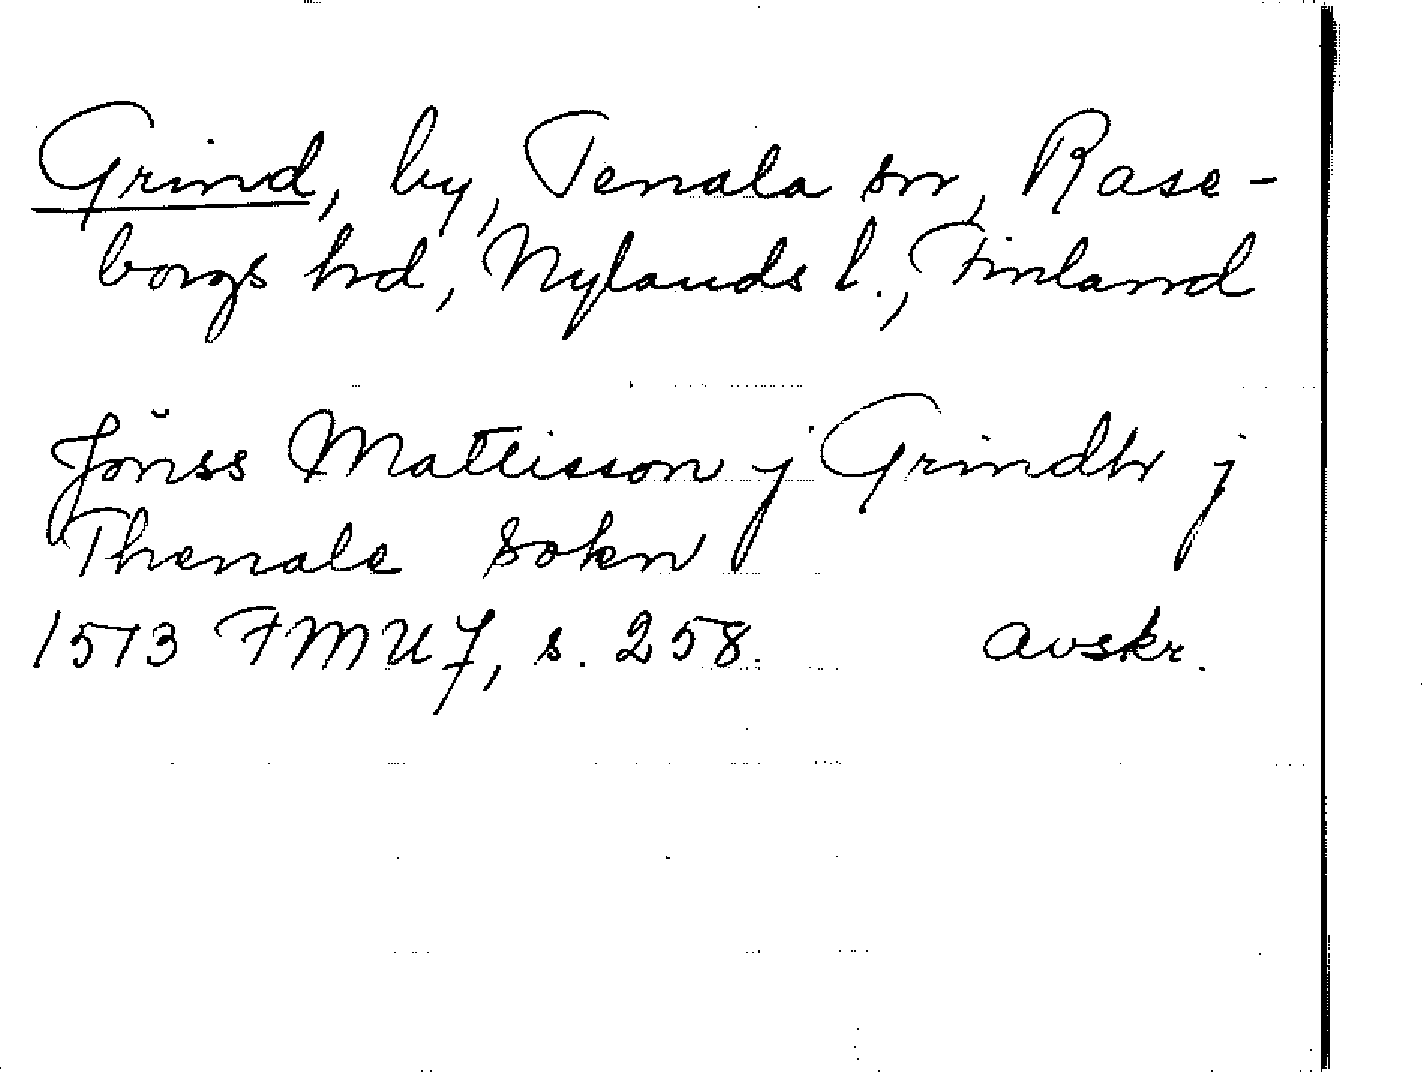 Grind, by, Tenala sn, Rase-
borgs hd, Nylands l., Finland
Jönss Mattisson j Grindhr j
Thenale Sokn
1513 FMU 7, s. 258. avskr.